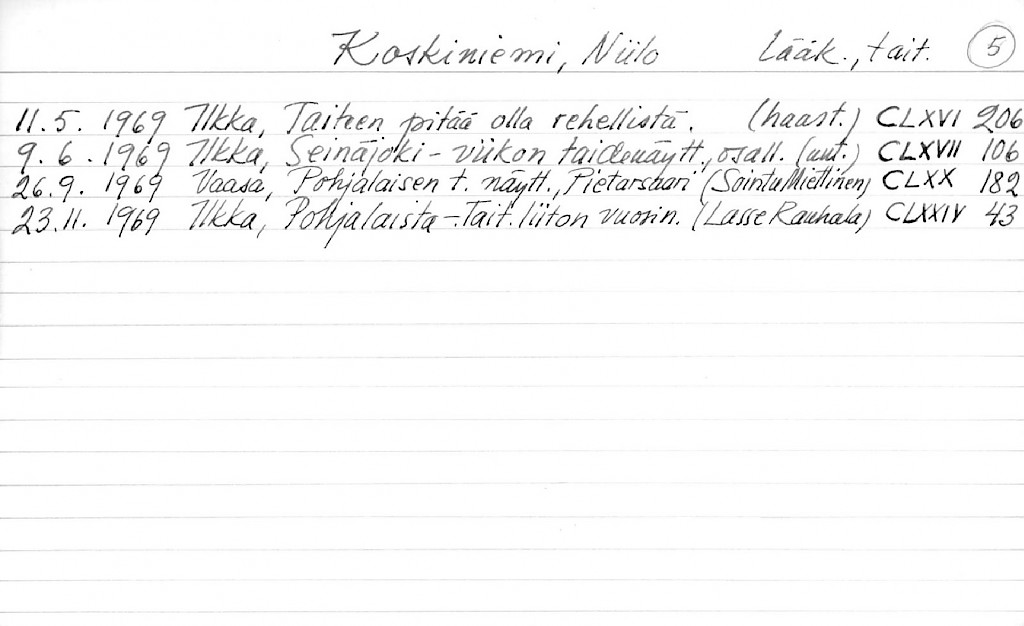 Koskiniemi, Niilo Lääk., tait. 5
11.5. 1969 Ilkka, Taiteen pitää olla rehellistä. (haast.) CLXVI 206
9.6. 1969 Ilkka, Seinäjoki-viikon taidenäytt., osall. (uut.) CLXVII 106
26.9. 1969 Vaasa, Pohjalaisen t. näytt., Pietarsaari (Sointu Miettinen) CLXX 182
23.11. 1969 Ilkka, Pohjalaista-Tait.liiton vuosin. (Lasse Rauhala) CLXXIV 43